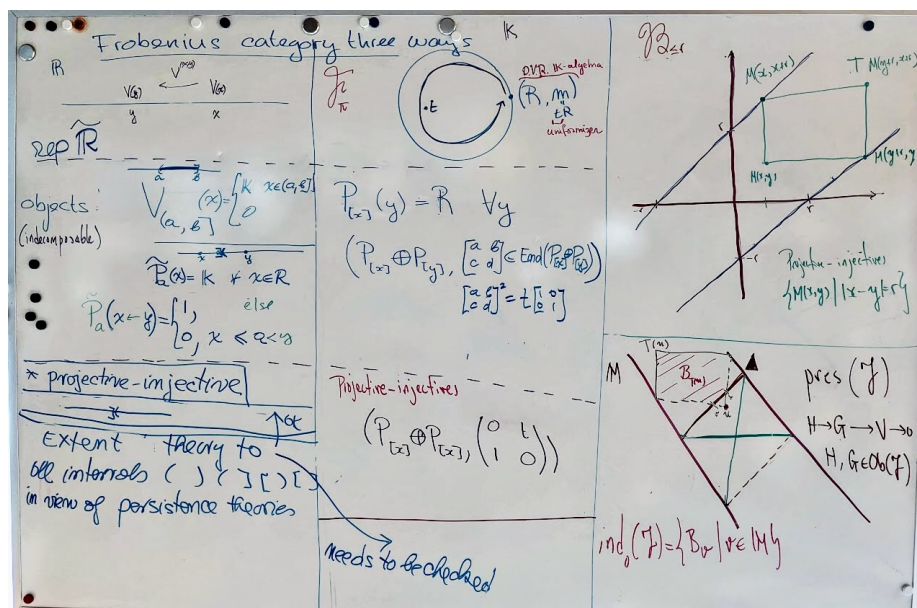 Frobenius category three ways
ℝ
V(y)
V(x)
y
x
rep ℝ̃
objects:
(indecomposable)
a
b
V_(a,b] (x) = { 𝕂 x∈(a,b]
0
x
y
P̃_a(x) = 𝕂 ∀ x∈ℝ
P̃_a(x←y) = { 1, else
0, x ⩽ a < y
* projective-injective
Extent theory to
all intervals ( ) ( ] [ ) [ ]
in view of persistence theories
needs to be checked
𝕂
t
D.V.R. 𝕂-algebra
(R, m)
tR
uniformizer
P_[x](y) = R ∀y
(P_[x] ⊕ P_[y], [a b; c d] ∈ End(P_[x] ⊕ P_[y]))
[a b; c d]² = t [1 0; 0 1]
Projective-injectives
(P_[x] ⊕ P_[x], (0 t; 1 0))
M(x, x+r)
T M(y+r, x+r)
r
M(x,y)
M(y+r, y)
-r
r
-r
Projective-injectives
{M(x,y) | |x-y| = r}
M
T(u)
B_(u)
u
pres(𝒥)
H→G→V→0
H, G∈Ob(𝒥)
ind_0(𝒥) = {B_v | v∈ M}